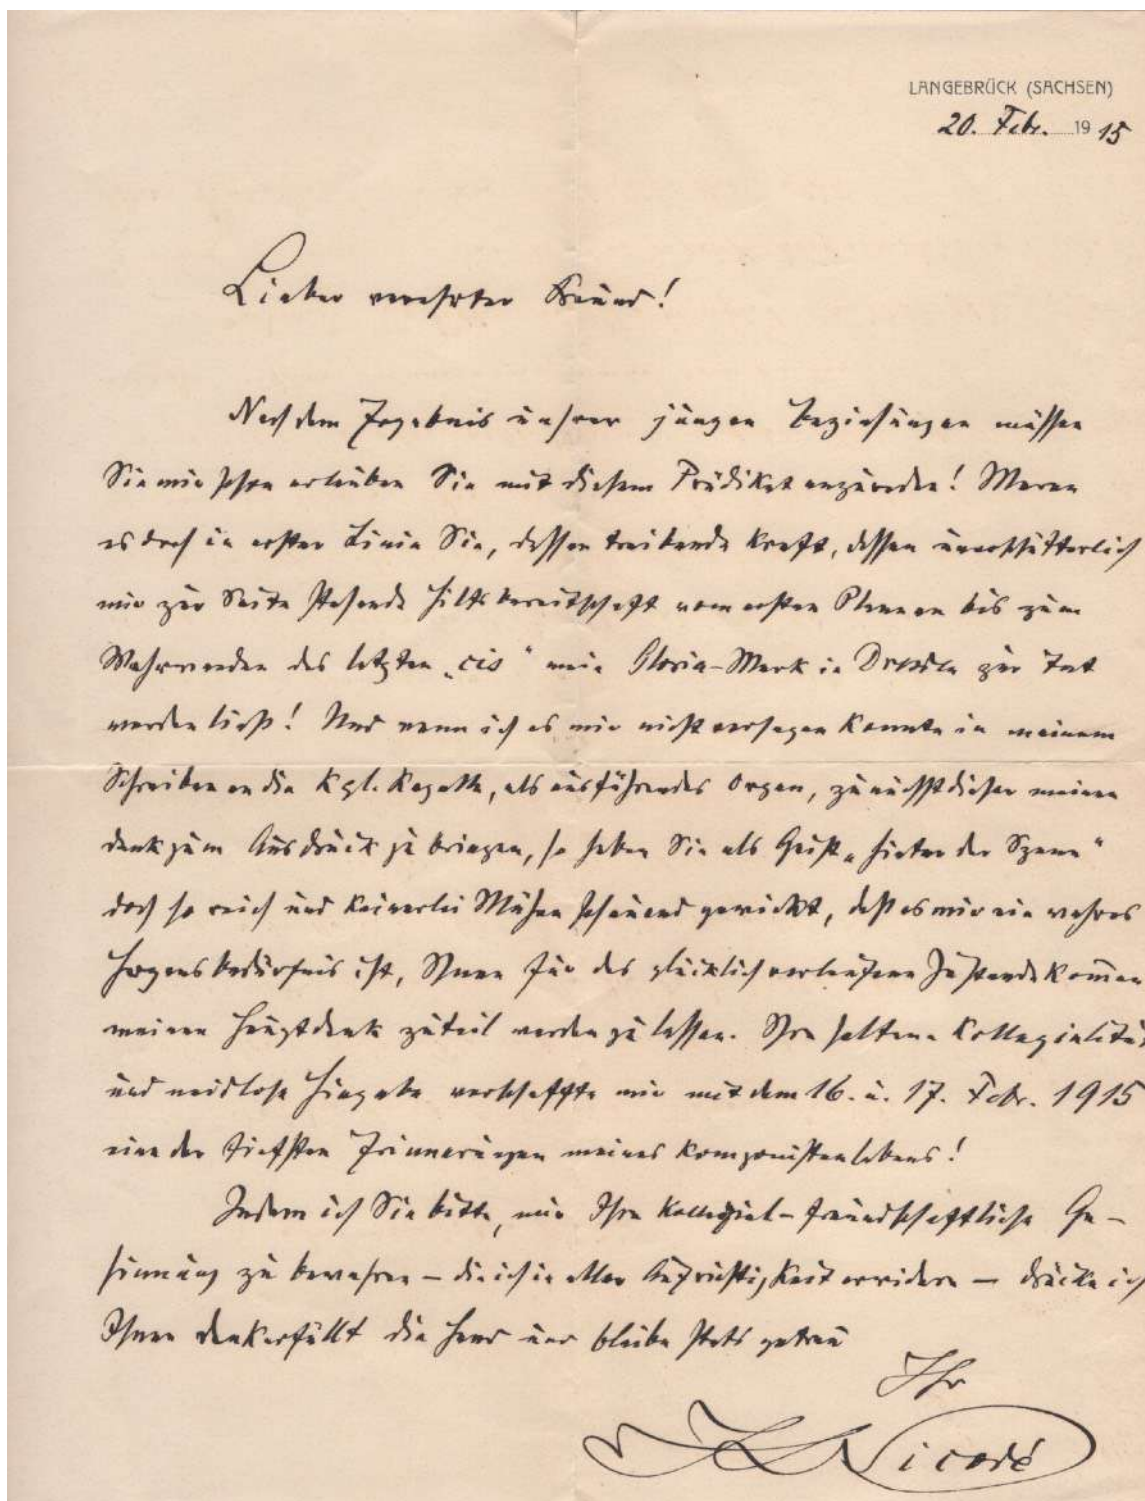 LANGEBRÜCK (SACHSEN)
20. Febr. 1915
Lieber verehrter Freund!
Nach dem Ergebnis unsrer jungen Beziehungen müssen
Sie mir schon erlauben Sie mit diesem Prädikat anzureden! Waren
es doch in erster Linie Sie, dessen treibende Kraft, dessen unerschütterlich
mir zur Seite stehende Hilfsbereitschaft vom ersten Planen bis zum
Wahrwerden des letzten „cis" mein Gloria-Werk in Dresden zur Tat
werden ließ! Und wenn ich es mir nicht versagen konnte in meinem
Schreiben an die Kgl. Kapelle, als ausführendes Organ, zunächst dieser meinen
Dank zum Ausdruck zu bringen, so haben Sie als Geist „hinter der Szene"
doch so reich und keinerlei Mühen scheuend gewirkt, daß es mir ein wahres
Herzensbedürfnis ist, Ihnen für das glücklich verlaufene Zustandekom̄en
meinen Hauptdank zuteil werden zu lassen. Ihre seltene Kollegialität
und neidlose Hingabe verschaffte mir mit dem 16. u. 17. Febr. 1915
eine der tiefsten Erinnerungen meines Komponistenlebens!
Indem ich Sie bitte, mir Ihre kollegial-freundschaftliche Ge-
sinnung zu bewahren – die ich in aller Aufrichtigkeit erwidere – drücke ich
Ihnen dankerfüllt die Hand und bleibe stets getreu
Ihr
JLNicodé